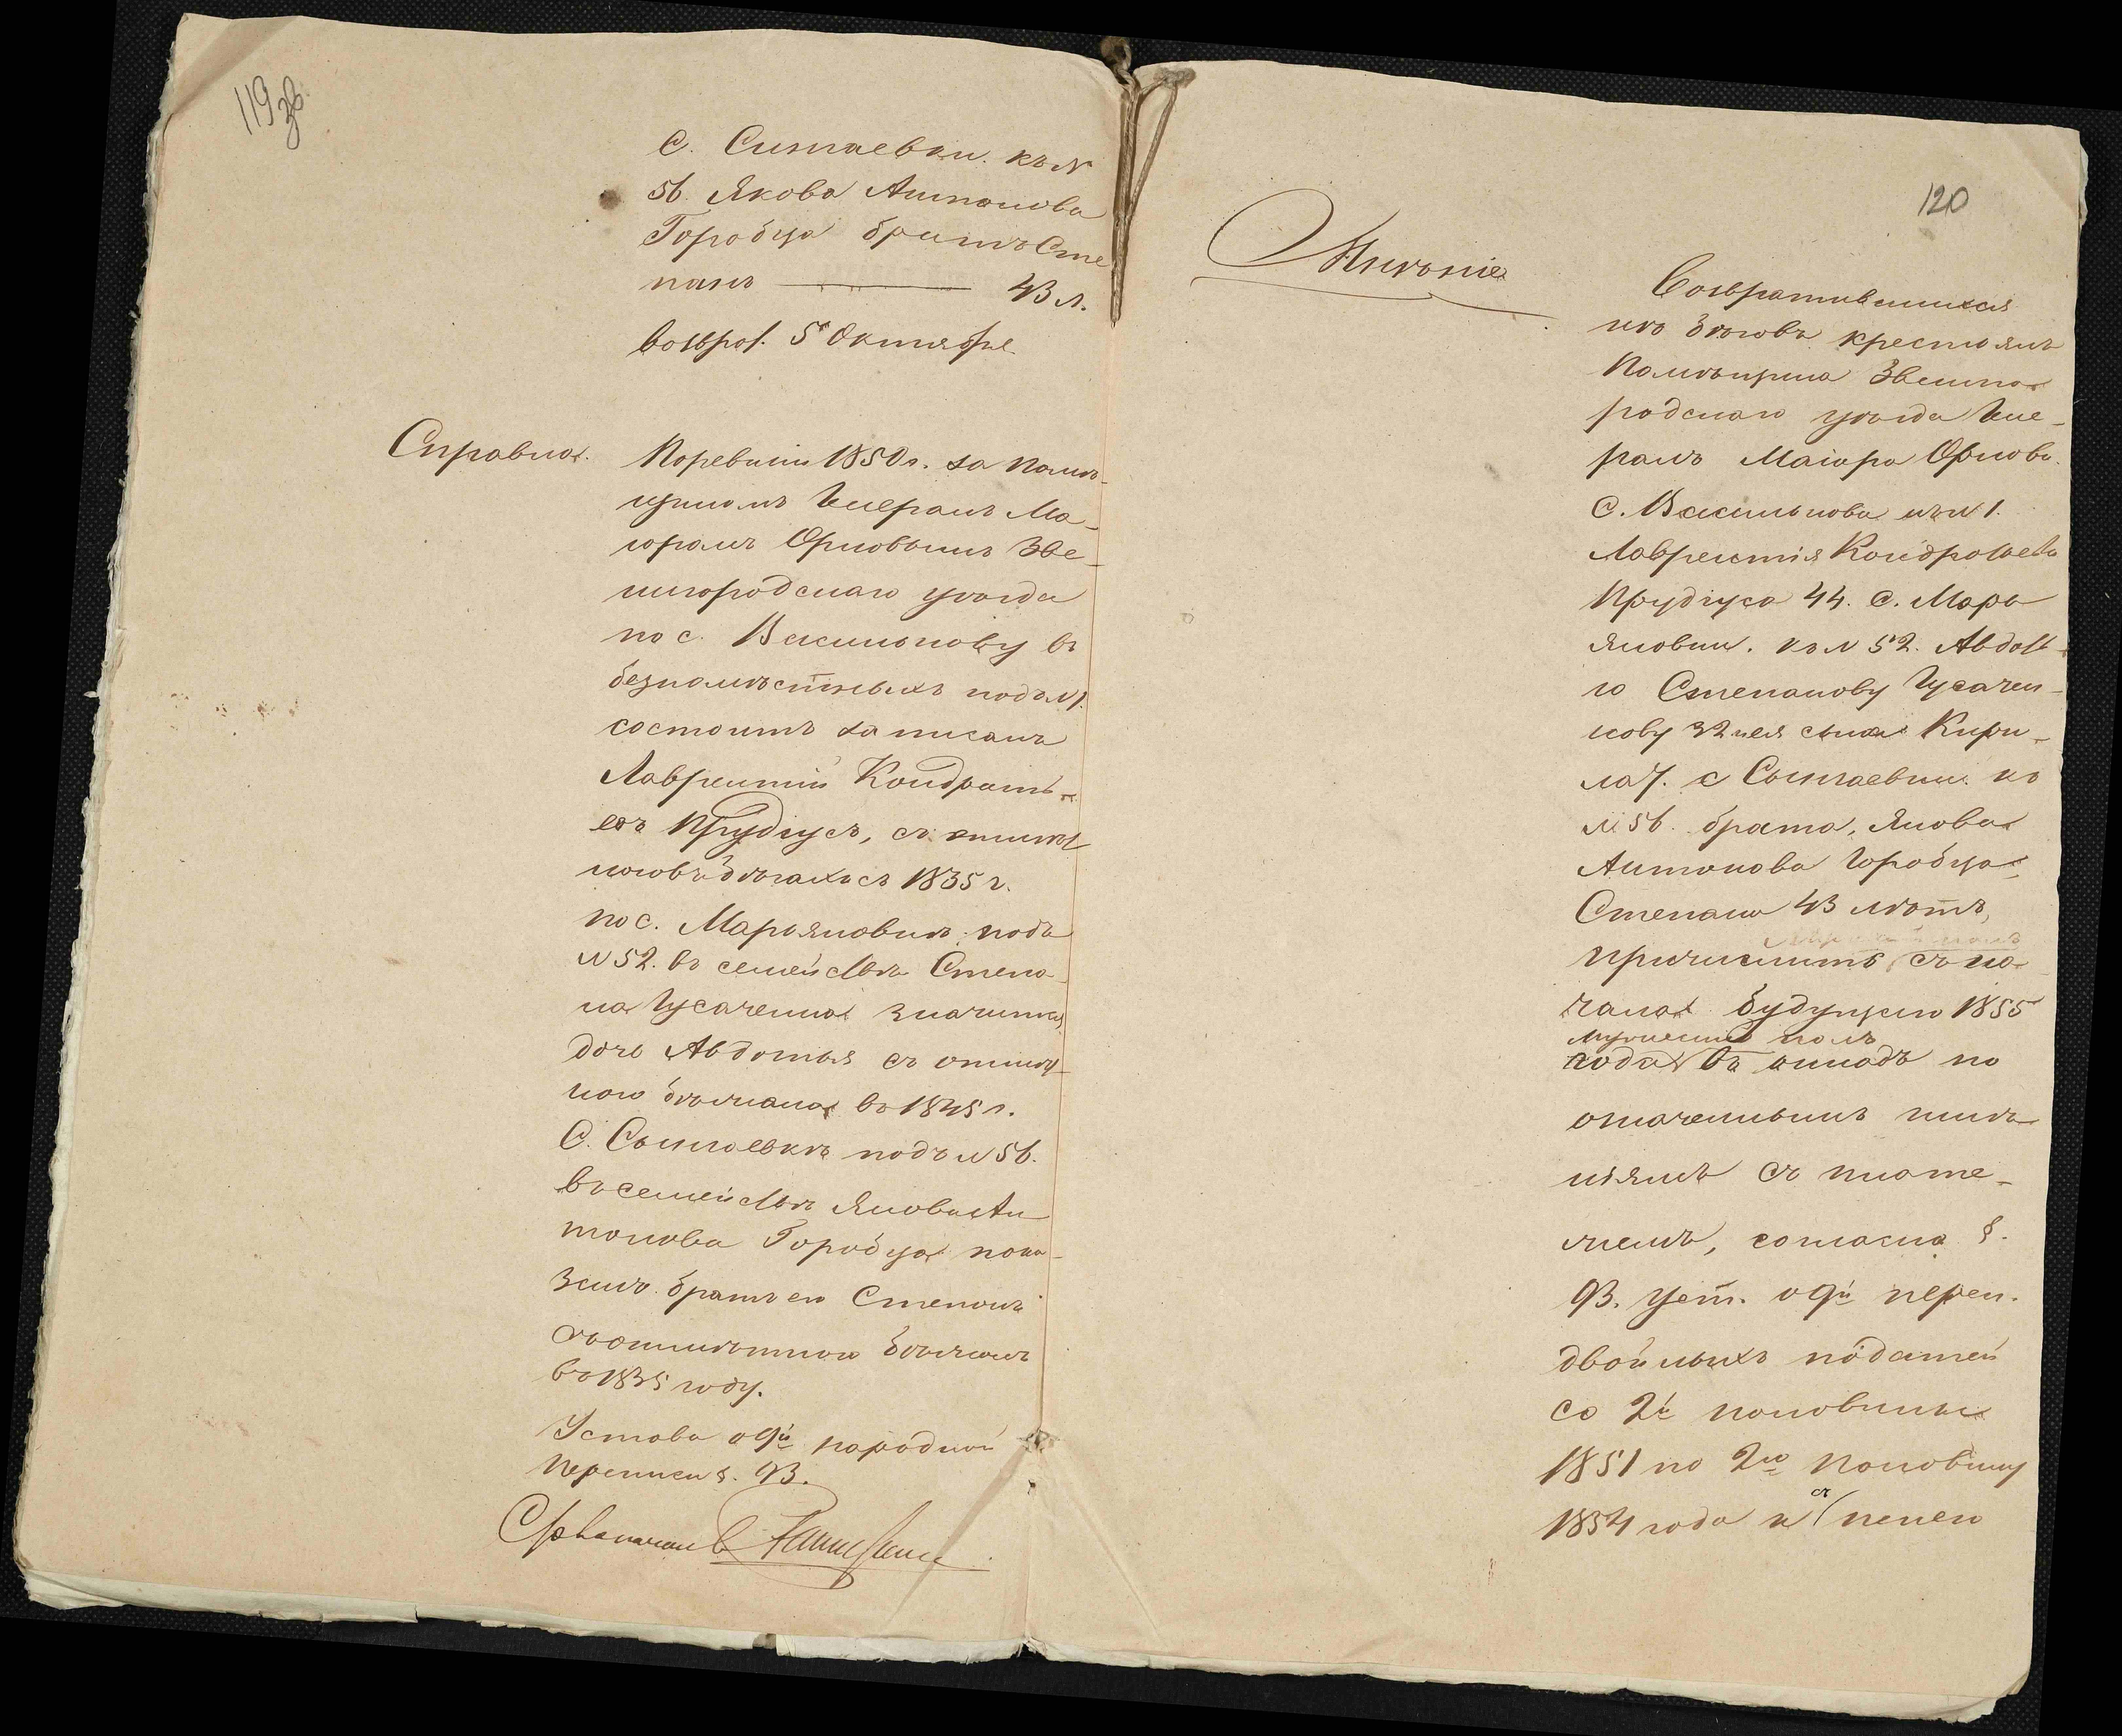 119 зв.
С. Сытаевки. къ N
56. Якова Антонова
Горобца братъ Сте
панъ — 43 л.
Возврат. 5 Октября
Справка.
По ревизіи 1850 г. за помѣ-
щикомъ Генералъ Ма-
іоромъ Орловымъ Зве-
нигородскаго уѣзда
по с. Василькову въ
безпомѣстныхъ подъ N 1.
состоитъ записанъ
Лаврентій Кондрать-
евъ Прудіусъ, съ отмѣт
кою въ бѣгахъ съ 1835 г.
по с. Марьяновкѣ подъ
N 52. въ семействѣ Степа-
на Гусаченка значится
дочь Авдотья съ отмѣт-
кою бѣжала въ 1845 г.
С. Сытаевкѣ подъ N 56.
въ семействѣ Якова Ан
тонова Горобца пока-
занъ братъ его Степанъ
съ отмѣткою бѣжалъ
въ 1835 году.
Устава о 9й народной
переписи §. 93.
120
Мнѣніе
Возвратившихся
изъ бѣговъ крестьянъ
Помѣщика Звениго-
родскаго уѣзда Гене-
ралъ Маіора Орлова.
С. Василькова къ N 1.
Лаврентія Кондратьева
Прудіуса 44. С. Марь
яновки. къ N 52. Авдоть-
ю Степанову Гусачен-
кову 32 и ея сына Кири-
ла 7. с Сытаевки. къ
N 56. брата, Якова
Антонова Горобца,
Степана 43 лѣтъ,
причислить съ на
чала будущаго 1855
мужескій полъ
года въ окладъ по
означеннымъ имѣ-
ніямъ съ плате-
жемъ, согласно §.
93. Уст. о 9й переп.
двойныхъ податей
со 2й половины
1851 по 2ю половину
1854 года и съ пенею